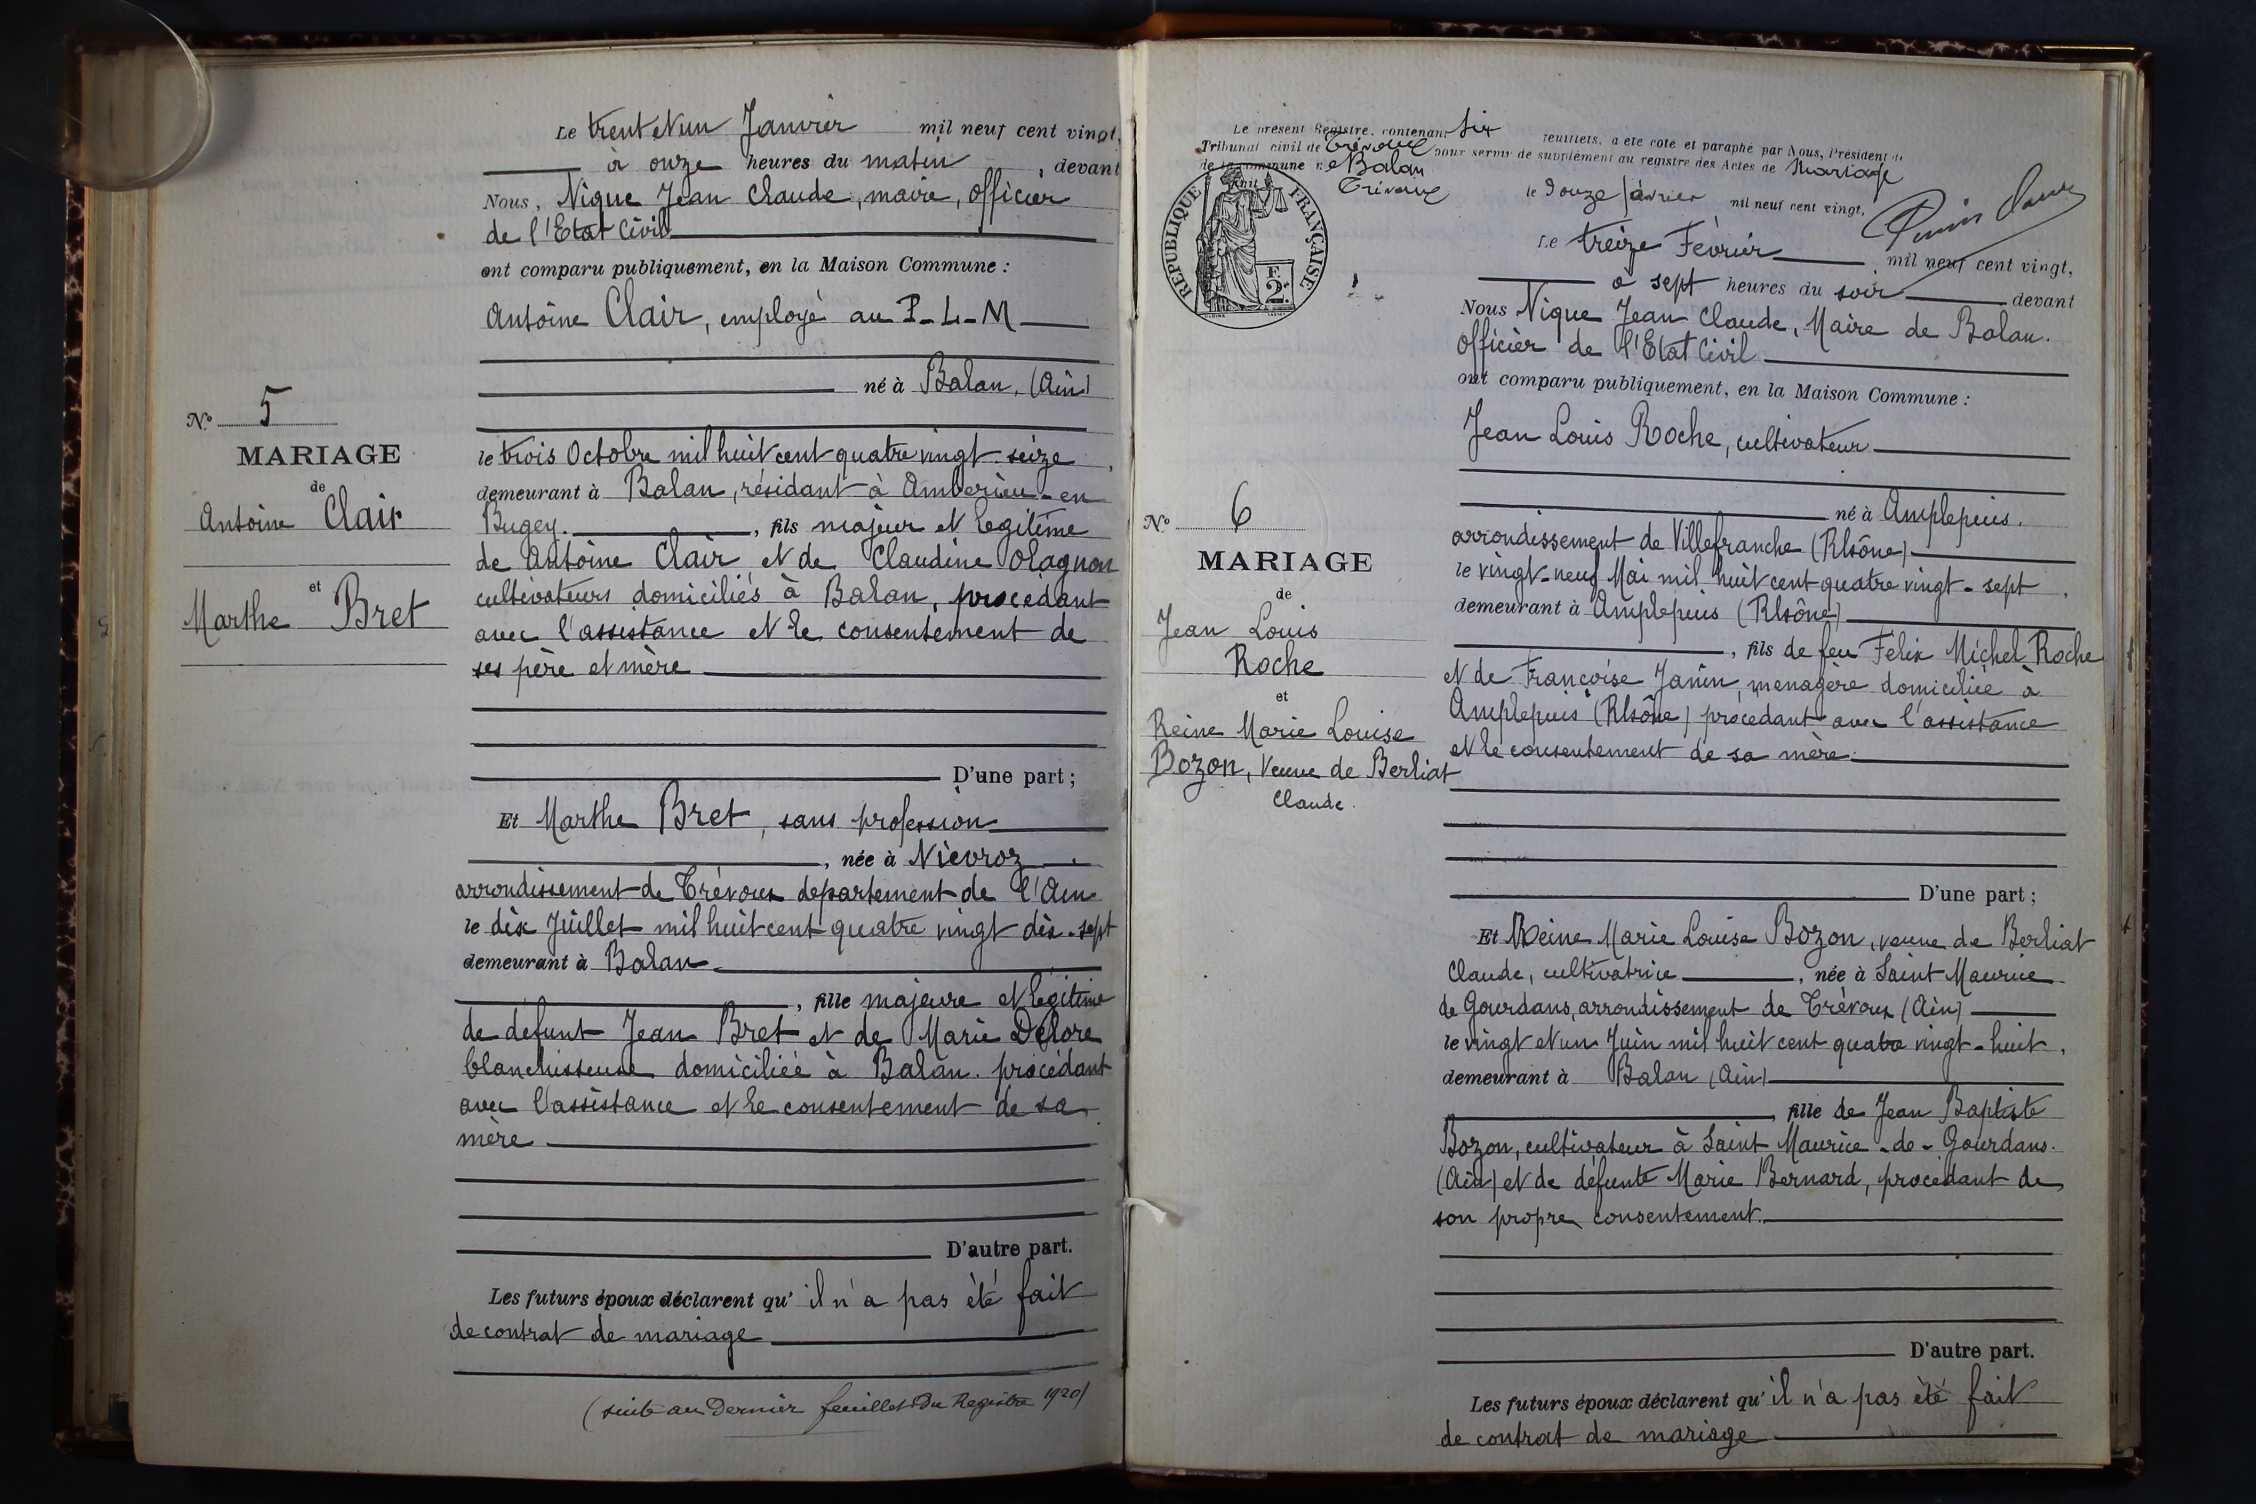 Le trent et un Janvier mil neuf cent vingt,
à onze heures du matin, devant
Nous, Nique Jean Claude, maire, Officier
de l'Etat Civil
ont comparu publiquement, en la Maison Commune :
Antoine Clair, employé au P-L-M
né à Balan, (Ain)
N° 5
MARIAGE
de
Antoine Clair
et
Marthe Bret
le trois Octobre mil huit cent quatre vingt-seize,
demeurant à Balan, résidant à Amberieu-en
Bugey., fils majeur et legitime
de Antoine Clair et de Claudine Olagnon
cultivateurs domiciliés à Balan, procédant
avec l'assistance et le consentement de
ses père et mère
D'une part ;
Et Marthe Bret, sans profession
, née à Nièvroz
arrondissement de Trévoux departement de l'Ain
le dix Juillet mil huit cent quatre vingt dix-sept
demeurant à Balan
, fille majeure et légitime
de défunt Jean Bret et de Marie Delore
blanchisseuse domiciliée à Balan. procédant
avec l'assistance et le consentement de sa
mère
D'autre part.
Les futurs époux déclarent qu'il n'a pas été fait
de contrat de mariage
(suite au Dernier feuillet du Registre 1920)
Le présent Registre, contenant six feuillets, a été coté et paraphé par Nous, Président du
Tribunal civil de Trévoux pour servir de supplément au registre des Actes de Mariage
de la commune de Balan
Trévoux le Douze février mil neuf cent vingt,
RÉPUBLIQUE FRANÇAISE
F.
2
Le treize Février mil neuf cent vingt,
à sept heures du soir devant
Nous Nique Jean Claude, Maire de Balan.
Officier de l'Etat Civil
ont comparu publiquement, en la Maison Commune :
Jean Louis Roche, cultivateur
né à Amplepuis.
arrondissement de Villefranche (Rhône)
le vingt-neuf Mai mil huit cent quatre vingt-sept,
demeurant à Amplepuis (Rhône)
, fils de feu Félix Michel Roche
et de Françoise Janin, menagère domiciliée à
Amplepuis (Rhône) procédant avec l'assistance
et le consentement de sa mère.
N° 6
MARIAGE
de
Jean Louis
Roche
et
Reine Marie Louise
Bozon, Veuve de Berliat
Claude.
D'une part ;
Et Reine Marie Louise Bozon, veuve de Berliat
Claude, cultivatrice, née à Saint Maurice
de Gourdans, arrondissement de Trévoux (Ain)
le vingt et un Juin mil huit cent quatre vingt-huit,
demeurant à Balan (Ain)
, fille de Jean Baptiste
Bozon, cultivateur à Saint Maurice-de-Gourdans.
(Ain) et de défunte Marie Bernard, procédant de
son propre consentement.
D'autre part.
Les futurs époux déclarent qu'il n'a pas été fait
de contrat de mariage